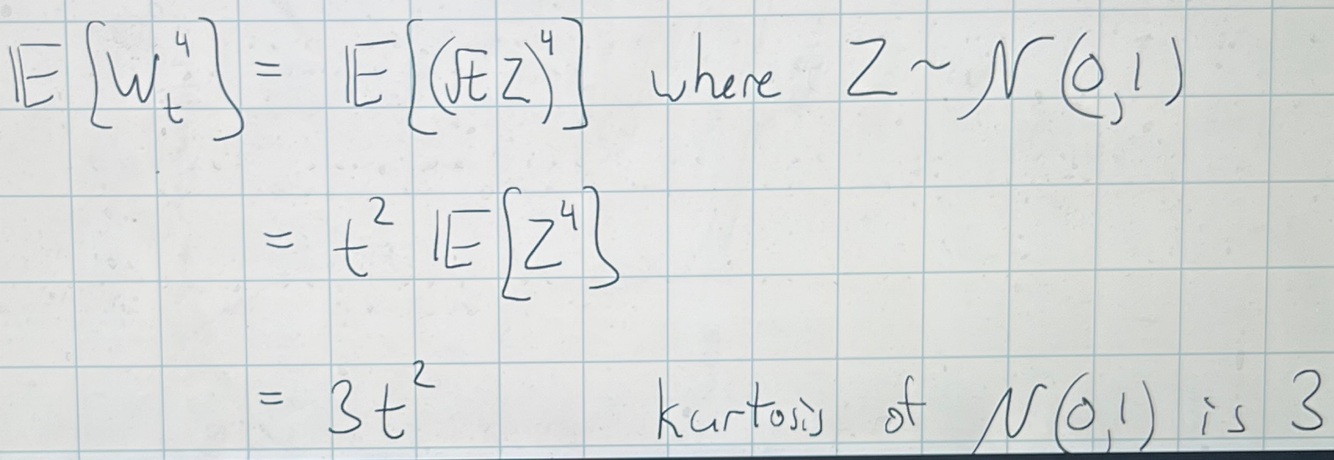 𝔼[W_t^4] = 𝔼[(√t Z)^4] where Z ~ N(0,1)
= t^2 𝔼[Z^4]
= 3t^2 kurtosis of N(0,1) is 3